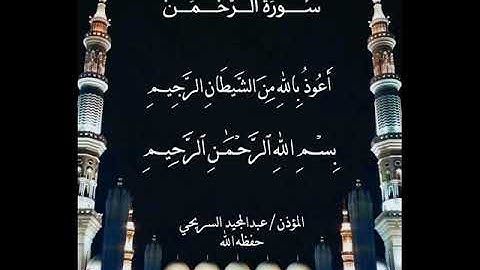 سُورَةُ الرَّحْمَٰن
أَعُوذُ بِاللهِ مِنَ الشَّيْطَانِ الرَّجِيمِ
بِسْمِ اللهِ الرَّحْمَٰنِ الرَّحِيمِ
المؤذن / عبدالمجيد السريحي
حفظه الله